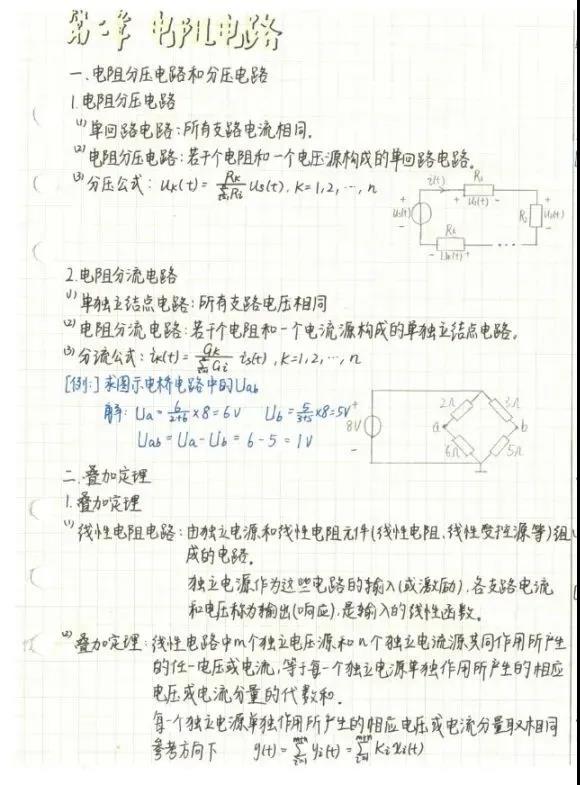 第一章 电阻电路
一、电阻分压电路和分压电路
1.电阻分压电路
(1) 单回路电路:所有支路电流相同。
(2) 电阻分压电路:若干个电阻和一个电压源构成的单回路电路。
(3) 分压公式: Uk(t) = Rk / ∑Ri Us(t), K=1,2,…,n
i(t) R1
+ U1(t) -
+ Us(t) -
Ri + Ui(t) -
Rk
- Uk(t) +
2.电阻分流电路
(1) 单独立结点电路:所有支路电压相同
(2) 电阻分流电路:若干个电阻和一个电流源构成的单独立结点电路。
(3) 分流公式: ik(t) = Gk / ∑Gi is(t), K=1,2,…,n
[例:]求图示电桥电路中的Uab
解: Ua = 6/2+6 ×8 = 6V Ub = 5/3+5 ×8 = 5V
Uab = Ua - Ub = 6 - 5 = 1V
+ 8V -
2Ω 3Ω
a b
6Ω 5Ω
二、叠加定理
1.叠加定理
(1) 线性电阻电路:由独立电源和线性电阻元件(线性电阻、线性受控源等)组
成的电路。
独立电源作为这些电路的输入(或激励),各支路电流
和电压称为输出(响应),是输入的线性函数。
(2) 叠加定理:线性电路中m个独立电压源和n个独立电流源共同作用所产生
的任一电压或电流,等于每一个独立电源单独作用所产生的相应
电压或电流分量的代数和。
每一个独立电源单独作用所产生的相应电压或电流分量取相同
参考方向下 y(t) = ∑(i=1→m+n) yi(t) = ∑(i=1→m+n) Ki xi(t)